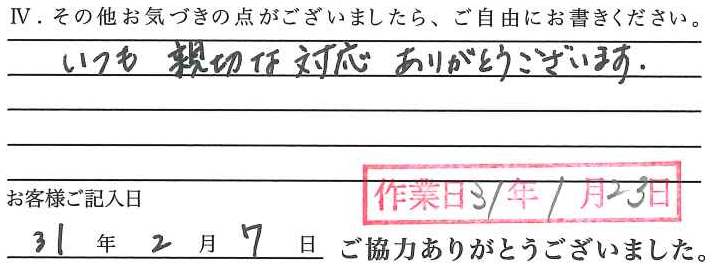 Ⅳ．その他お気づきの点がございましたら、ご自由にお書きください。
いつも 親切な対応 ありがとうございます.
作業日31年1月23日
お客様ご記入日
31 年 2 月 7 日 ご協力ありがとうございました。